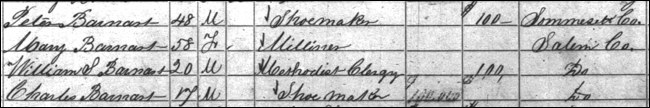 Peter Barnart 48 M Shoemaker 100 Sommesett Co.
Mary Barnart 58 F Milliner Salem Co.
William S Barnart 20 M Methodist Clergy 100 Do
Charles Barnart 17 M Shoe maker Do